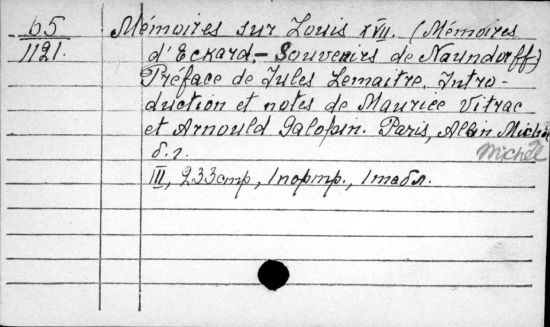 65 Mémoires sur Louis XVII. (Mémoires
1121. d'Eckard.- Souvenirs de Naundorff)
Préface de Jules Lemaitre. Intro-
duction et notes de Maurice Vitrac
et Arnould Galopin. Paris, Albin Michel
б. г. Michel
III, 233стр, 1портр., 1табл.